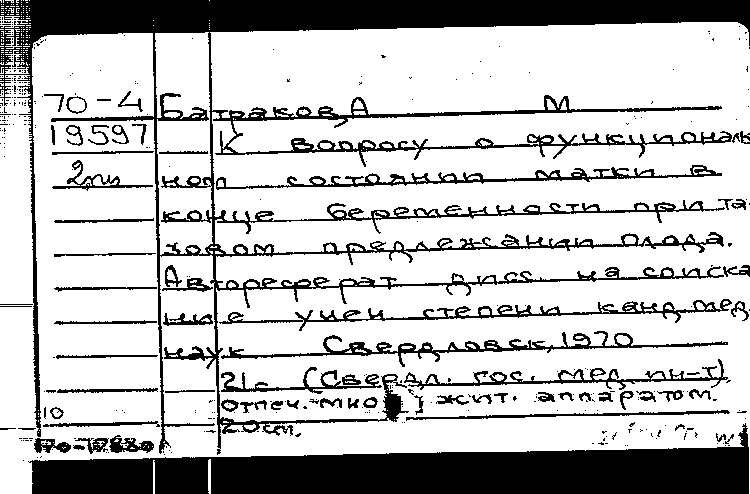 70-4 Батраков, А М
19597 К вопросу о функциональ
2пи ном состоянии матки в
конце беременности при та-
зовом предлежании плода.
Автореферат дисс. на соиска
ние учен степени канд мед
наук Свердловск, 1970
21с (Свердл. гос. мед ин-т)
10 Отпеч. мно жит. аппаратом.
20см.